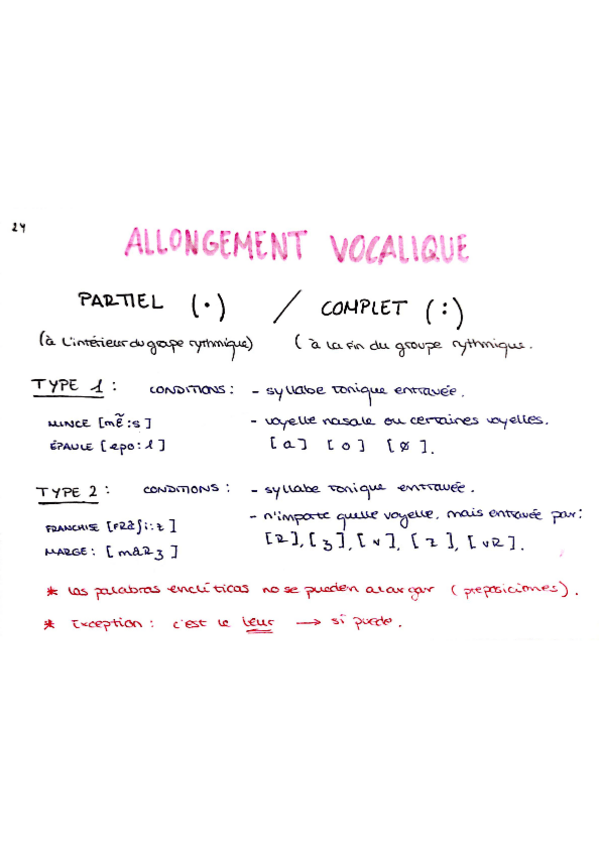 24
ALLONGEMENT VOCALIQUE
PARTIEL (·) / COMPLET (:)
(à l'intérieur du groupe rythmique) (à la fin du groupe rythmique.
TYPE 1: CONDITIONS: - syllabe tonique entravée.
MINCE [mɛ̃:s] - voyelle nasale ou certaines voyelles.
ÉPAULE [epo:l] [ɑ] [o] [ø].
TYPE 2: CONDITIONS: - syllabe tonique entravée.
- n'importe quelle voyelle, mais entravée par:
FRANCHISE [FRãʃi:z] [R], [ʒ], [v], [z], [vR].
MARGE: [maRʒ]
* las palabras enclíticas no se pueden alargar (preposiciones).
* Exception: c'est le leur → si puede.